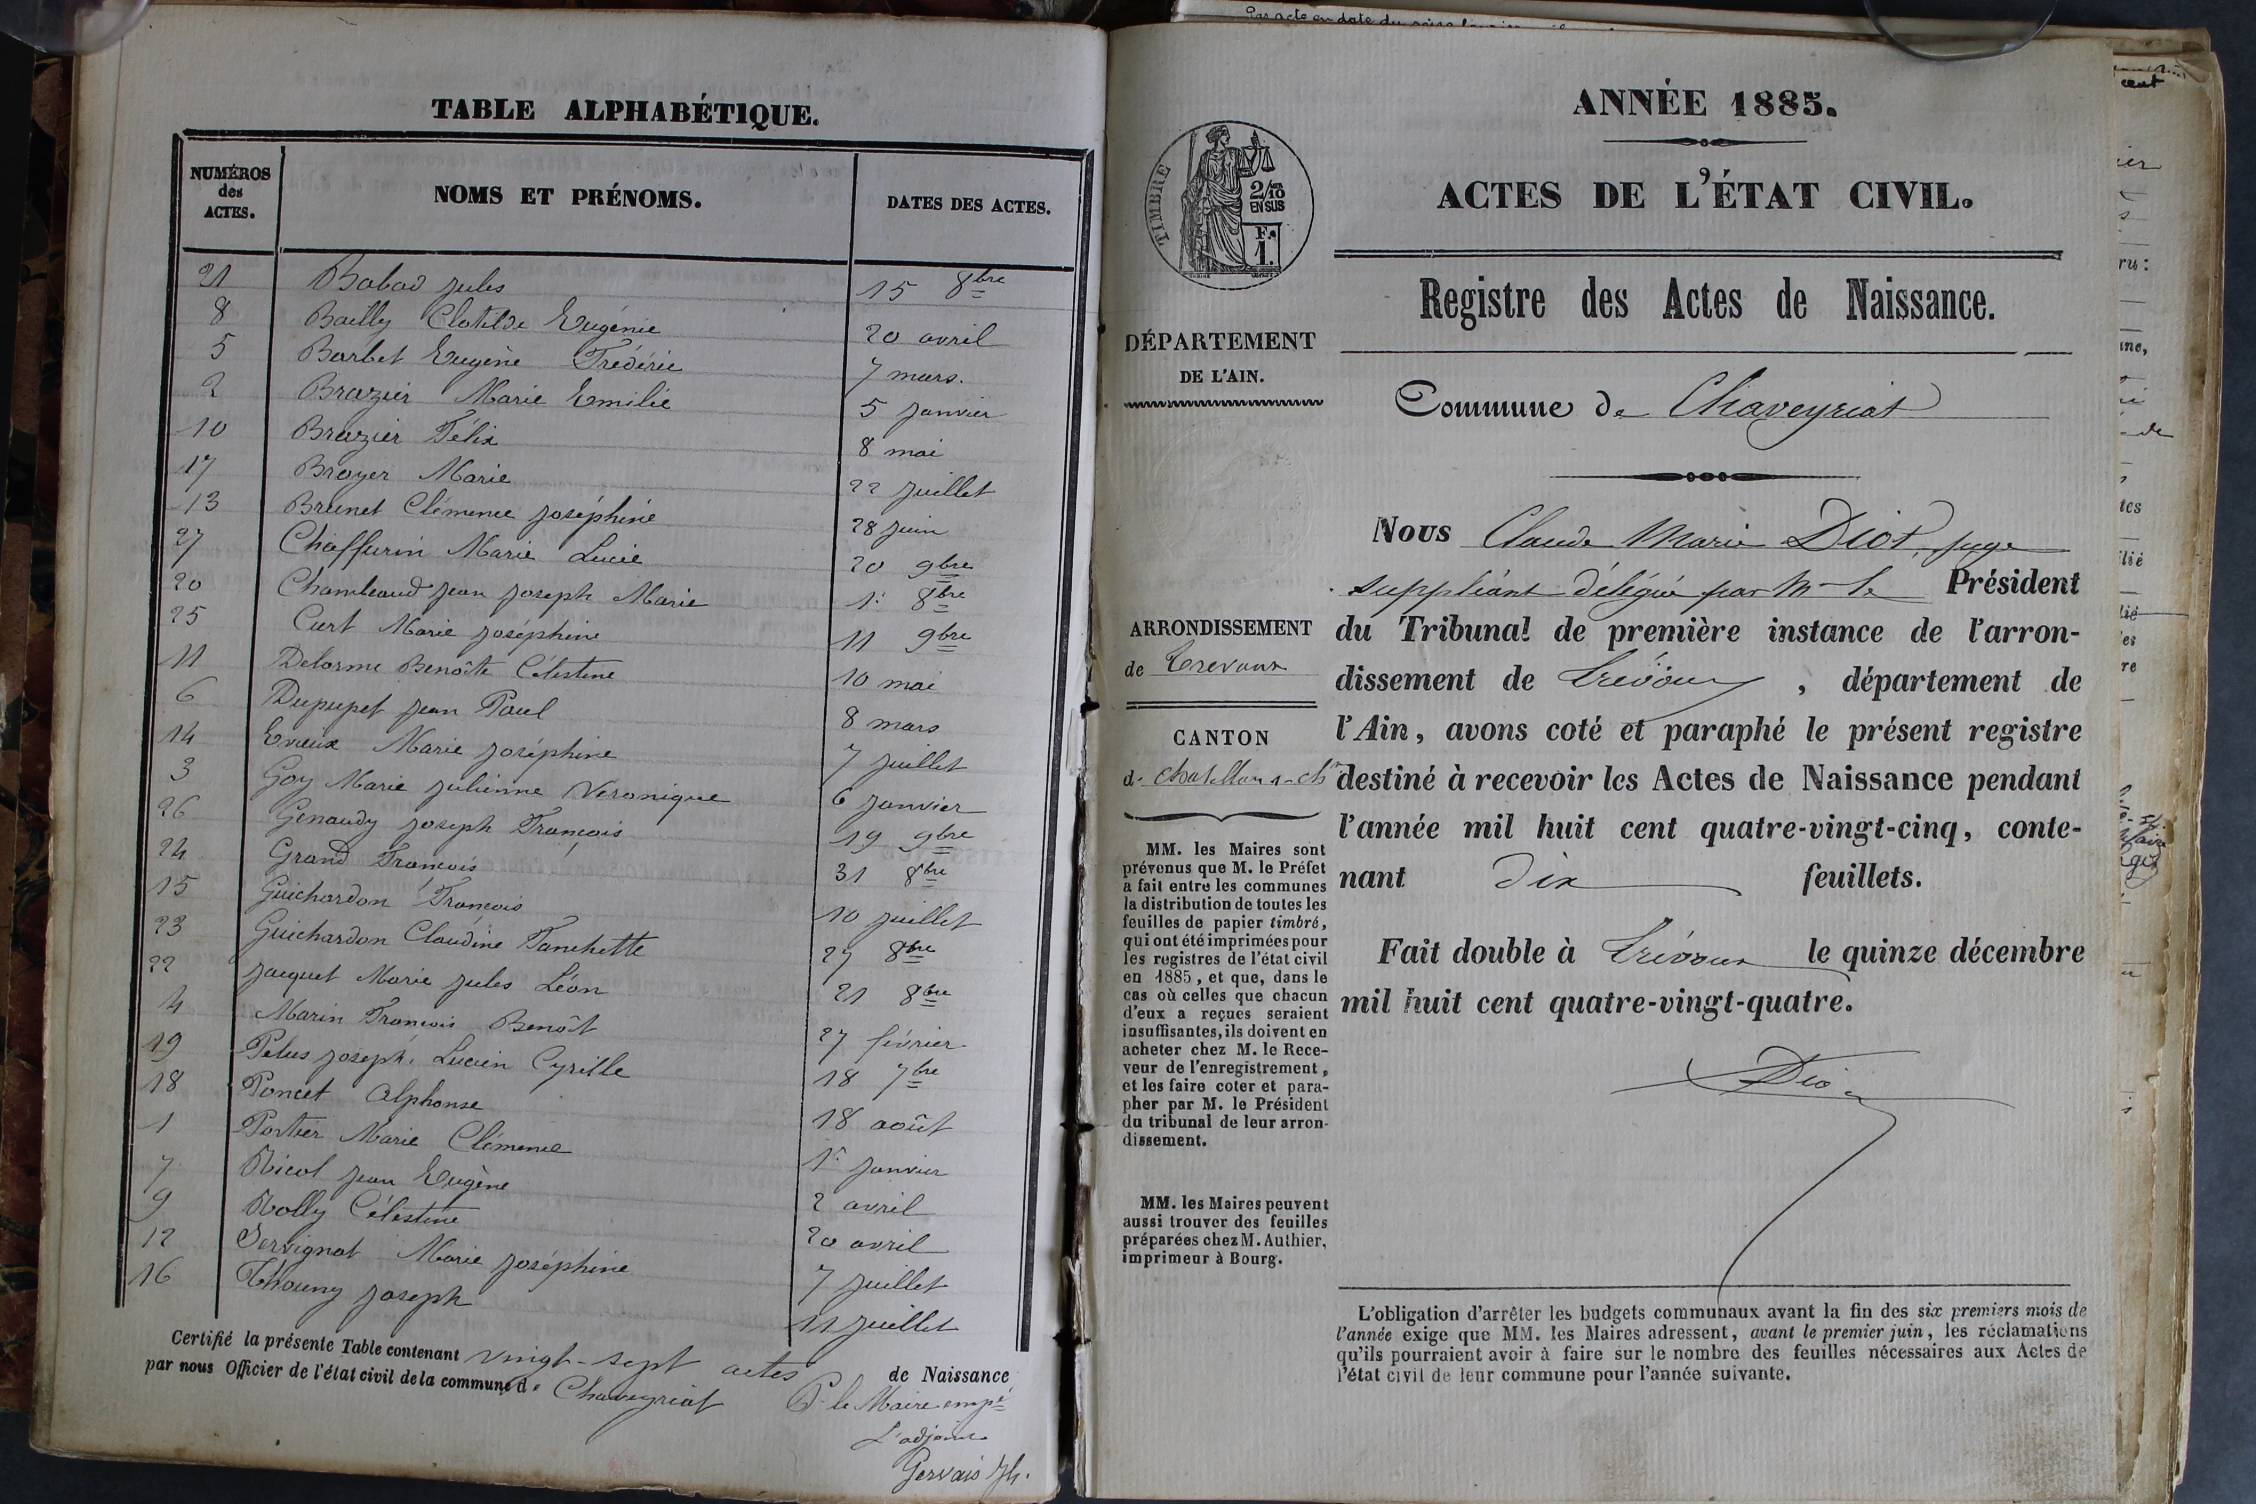 TABLE ALPHABÉTIQUE.
NUMÉROS des ACTES. NOMS ET PRÉNOMS. DATES DES ACTES.
21 Babad Jules 15 8bre
8 Bailly Clotilde Eugénie 20 avril
5 Barbet Eugène Frédéric 7 mars.
2 Brazier Marie Emilie 5 janvier
10 Brazier Félix 8 mai
17 Broyer Marie 22 juillet
13 Brunet Clémence Joséphine 28 juin
27 Chaffurin Marie Lucie 20 9bre
20 Chambaud Jean Joseph Marie 1r 8bre
25 Curt Marie Joséphine 11 9bre
11 Delorme Benoîte Célestine 10 mai
6 Dupupet Jean Paul 8 mars
14 Evieux Marie Joséphine 7 juillet
3 Goy Marie Julienne Véronique 6 janvier
26 Genaudy Joseph François 19 9bre
24 Grand François 31 8bre
15 Guichardon François 10 juillet
23 Guichardon Claudine Fanchette 27 8bre
22 Jacquet Marie Jules Léon 21 8bre
4 Marin François Benoît 27 février
19 Pelus Joseph Lucien Cyrille 18 7bre
18 Poncet Alphonse 18 août
1 Portier Marie Clémence 1r janvier
7 Nicol Jean Eugène 2 avril
9 Rolly Célestine 20 avril
12 Servignat Marie Joséphine 7 juillet
16 Thouny Joseph 11 juillet
Certifié la présente Table contenant vingt-sept actes de Naissance
par nous Officier de l'état civil de la commune de Chaveyriat
P. le Maire empé
L'adjoint
Gervais Jh.
Par acte en date du
ANNÉE 1885.
ACTES DE L'ÉTAT CIVIL.
TIMBRE
2/10 EN SUS
F. 1.
Registre des Actes de Naissance.
DÉPARTEMENT
DE L'AIN.
Commune de Chaveyriat
Nous Claude Marie Diot, juge
suppléant délégué par Mr le Président
du Tribunal de première instance de l'arron-
dissement de Trévoux, département de
l'Ain, avons coté et paraphé le présent registre
destiné à recevoir les Actes de Naissance pendant
l'année mil huit cent quatre-vingt-cinq, conte-
nant dix feuillets.
Fait double à Trévoux le quinze décembre
mil huit cent quatre-vingt-quatre.
Diot
ARRONDISSEMENT
de Trevoux
CANTON
de Chatillon s-Ch
MM. les Maires sont
prévenus que M. le Préfet
a fait entre les communes
la distribution de toutes les
feuilles de papier timbré,
qui ont été imprimées pour
les registres de l'état civil
en 1885, et que, dans le
cas où celles que chacun
d'eux a reçues seraient
insuffisantes, ils doivent en
acheter chez M. le Rece-
veur de l'enregistrement,
et les faire coter et para-
pher par M. le Président
du tribunal de leur arron-
dissement.
MM. les Maires peuvent
aussi trouver des feuilles
préparées chez M. Authier,
imprimeur à Bourg.
L'obligation d'arrêter les budgets communaux avant la fin des six premiers mois de
l'année exige que MM. les Maires adressent, avant le premier juin, les réclamations
qu'ils pourraient avoir à faire sur le nombre des feuilles nécessaires aux Actes de
l'état civil de leur commune pour l'année suivante.